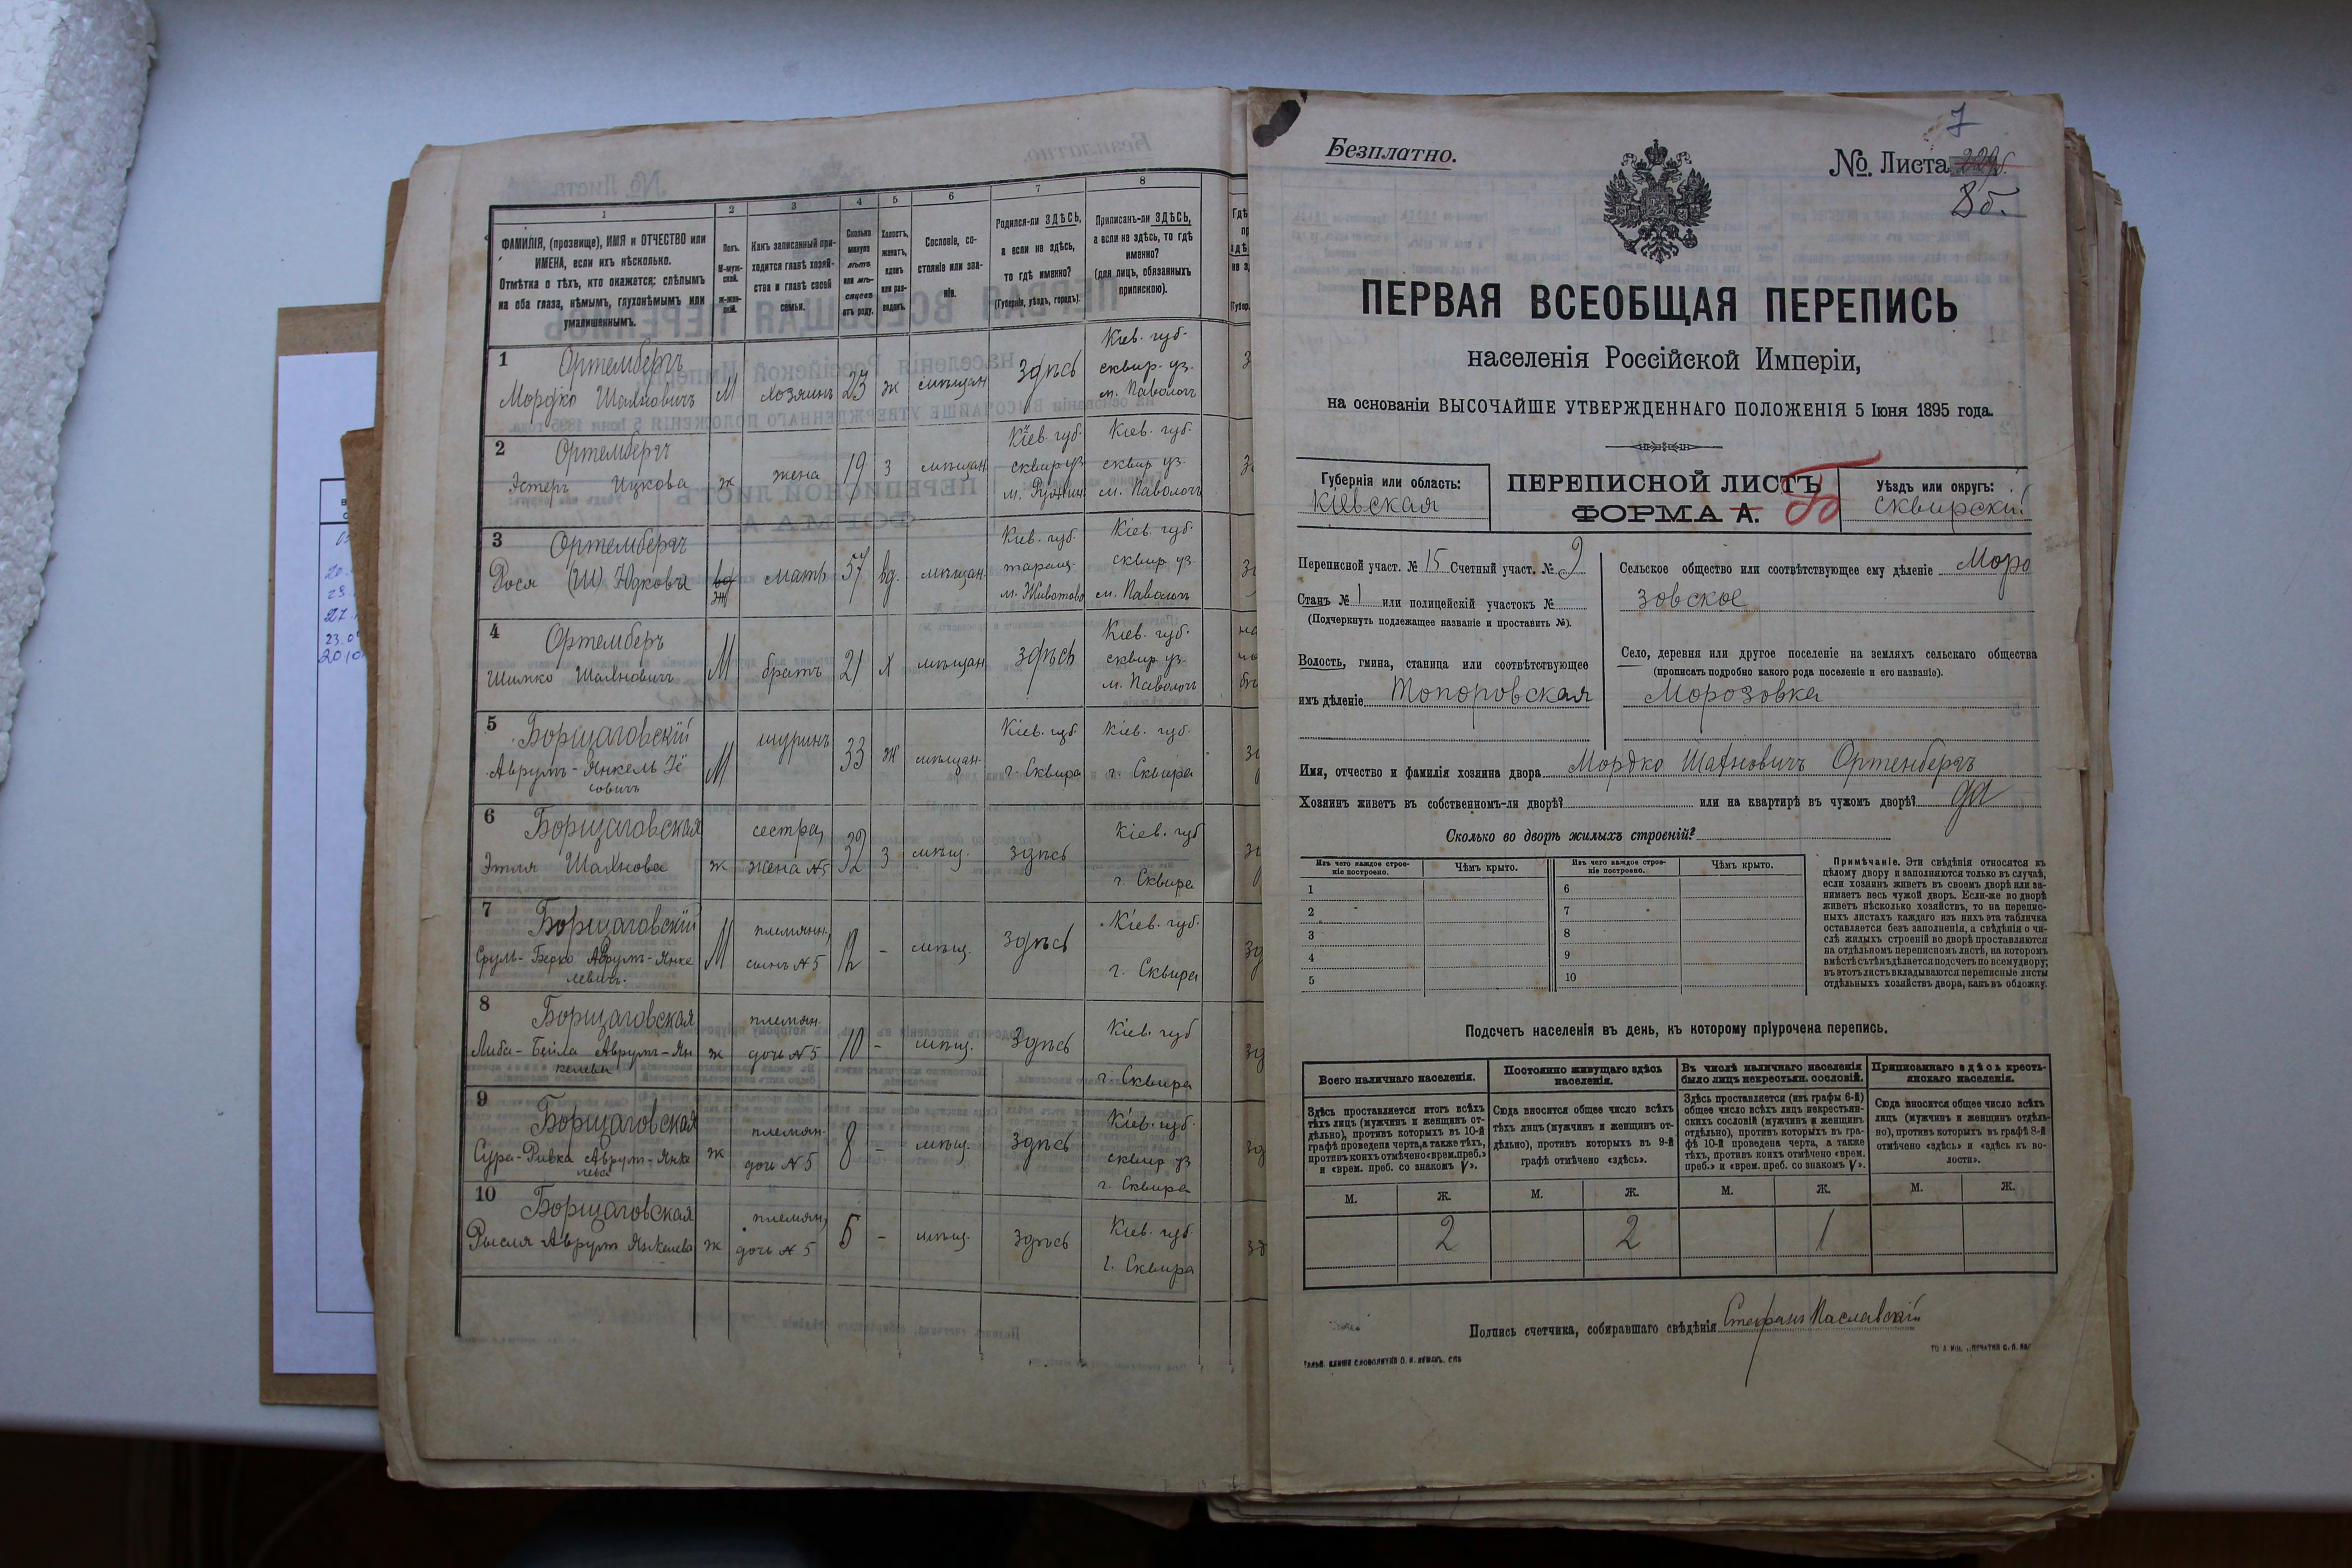 1
2
3
4
5
6
7
8
ФАМИЛІЯ, (прозвище), ИМЯ и ОТЧЕСТВО или
ИМЕНА, если ихъ нѣсколько.
Отмѣтка о тѣхъ, кто окажется: слѣпымъ
на оба глаза, нѣмымъ, глухонѣмымъ или
умалишеннымъ.
Полъ.
М-муж-
ской.
Ж-жен-
скій.
Какъ записанный при-
ходится главѣ хозяй-
ства и главѣ своей
семьи.
Сколько
минуло
лѣтъ
или мѣ-
сяцевъ
отъ роду.
Холостъ,
женатъ,
вдовъ
или раз-
веденъ.
Сословіе, со-
стояніе или зва-
ніе.
Родился-ли ЗДѢСЬ,
а если не здѣсь,
то гдѣ именно?
(Губернія, уѣздъ, городъ).
Приписанъ-ли ЗДѢСЬ,
а если не здѣсь, то гдѣ
именно?
(для лицъ, обязанныхъ
припискою).
1
Ортембергъ
Мордко Шахновичъ
М
хозяинъ
23
ж
мѣщан
здѣсь
Кіев. губ.
сквир. уз.
м. Паволочъ
2
Ортембергъ
Эстеръ Ицкова
ж
жена
19
з
мѣщан.
Кіев. губ.
сквир уз
м. Ружин
Кіев. губ.
сквир уз.
м. Паволочъ
3
Ортембергъ
Рося (Ш) Юдкова
вд
ж
мать
57
вд.
мѣщан.
Кіев. губ.
таращ.
м. Животово
Кіев. губ.
сквир уз.
м. Паволочъ
4
Ортемберъ
Шимко Шахновичъ
М
братъ
21
х
мѣщан
здѣсь
Кіев. губ.
сквир уз.
м. Паволочъ
5
Борщаговскій
Аврумъ-Янкель Іо
совичъ
М
шуринъ
33
ж
мѣщан.
Кіев. губ.
г. Сквира
Кіев. губ.
г. Сквира
6
Борщаговская
Этля Шахнова
ж
сестра,
жена №5
32
з
мѣщ.
здѣсь
Кіев. губ
г. Сквира
7
Борщаговскій
Сруль-Берко Аврумъ-Янке
левичъ.
М
племянн,
сынъ №5
12
-
мѣщ.
здѣсь
Кіев. губ.
г. Сквира
8
Борщаговская
Либа-Бейла Аврумъ-Ян
келева
ж
племян.
дочь №5
10
-
мѣщ.
здѣсь
Кіев. губ
г. Сквира
9
Борщаговская
Сура-Ривка Аврум-Янке
лева
ж
племян.
дочь №5
8
-
мѣщ.
здѣсь
Кіев. губ.
сквир уз
г. Сквира
10
Борщаговская
Рысля Аврум Янкелева
ж
племян,
дочь №5
5
-
мѣщ.
здѣсь
Кіев. губ.
г. Сквира
7
Безплатно.
№. Листа
8б.
ПЕРВАЯ ВСЕОБЩАЯ ПЕРЕПИСЬ
населенія Россійской Имперіи,
на основаніи ВЫСОЧАЙШЕ УТВЕРЖДЕННАГО ПОЛОЖЕНІЯ 5 Іюня 1895 года.
Губернія или область:
Кіевская
ПЕРЕПИСНОЙ ЛИСТЪ
ФОРМА А. Б
Уѣздъ или округъ:
Сквирскій
Переписной участ. № 15 Счетный участ. № 9
Станъ № 1 или полицейскій участокъ №
(Подчеркнуть подлежащее названіе и проставить №).
Волость, гмина, станица или соотвѣтствующее
имъ дѣленіе Топоровская
Сельское общество или соотвѣтствующее ему дѣленіе Моро
зовское
Село, деревня или другое поселеніе на земляхъ сельскаго общества
(прописать подробно какого рода поселеніе и его названіе).
Морозовка
Имя, отчество и фамилія хозяина двора Мордко Шахновичъ Ортенбергъ
Хозяинъ живетъ въ собственномъ-ли дворѣ? или на квартирѣ въ чужомъ дворѣ? да
Сколько во дворѣ жилыхъ строеній?
Изъ чего каждое строе-
ніе построено.
Чѣмъ крыто.
Изъ чего каждое строе-
ніе построено.
Чѣмъ крыто.
1
2
3
4
5
6
7
8
9
10
Примѣчаніе. Эти свѣдѣнія относятся къ
цѣлому двору и заполняются только въ случаѣ,
если хозяинъ живетъ въ своемъ дворѣ или за-
нимаетъ весь чужой дворъ. Если-же во дворѣ
живетъ нѣсколько хозяйствъ, то на перепис-
ныхъ листахъ каждаго изъ нихъ эта табличка
оставляется безъ заполненія, а свѣдѣнія о чи-
слѣ жилыхъ строеній во дворѣ проставляются
на отдѣльномъ переписномъ листѣ, на которомъ
вмѣстѣ съ тѣмъ дѣлается подсчетъ по всему двору;
въ этотъ листъ вкладываются переписные листы
отдѣльныхъ хозяйствъ двора, какъ въ обложку.
Подсчетъ населенія въ день, къ которому пріурочена перепись.
Всего наличнаго населенія.
Постоянно живущаго здѣсь
населенія.
Въ числѣ наличнаго населенія
было лицъ некрестьян. сословій.
Приписаннаго здѣсь кресть-
янскаго населенія.
Здѣсь проставляется итогъ всѣхъ
тѣхъ лицъ (мужчинъ и женщинъ от-
дѣльно), противъ которыхъ въ 10-й
графѣ проведена черта, а также тѣхъ,
противъ коихъ отмѣчено «врем. преб.»
и «врем. преб. со знакомъ V».
Сюда вносится общее число всѣхъ
тѣхъ лицъ (мужчинъ и женщинъ от-
дѣльно), противъ которыхъ въ 9-й
графѣ отмѣчено «здѣсь».
Здѣсь проставляется (изъ графы 6-й)
общее число всѣхъ лицъ некрестьян-
скихъ сословій (мужчинъ и женщинъ
отдѣльно), противъ которыхъ въ гра-
фѣ 10-й проведена черта, а также
тѣхъ, противъ коихъ отмѣчено «врем.
преб.» и «врем. преб. со знакомъ V».
Сюда вносится общее число всѣхъ
лицъ (мужчинъ и женщинъ отдѣль-
но), противъ которыхъ въ графѣ 8-й
отмѣчено «здѣсь» и «здѣсь къ во-
лости».
М.
Ж.
М.
Ж.
М.
Ж.
М.
Ж.
2
2
1
Подпись счетчика, собиравшаго свѣдѣнія Стефанъ Паславскій